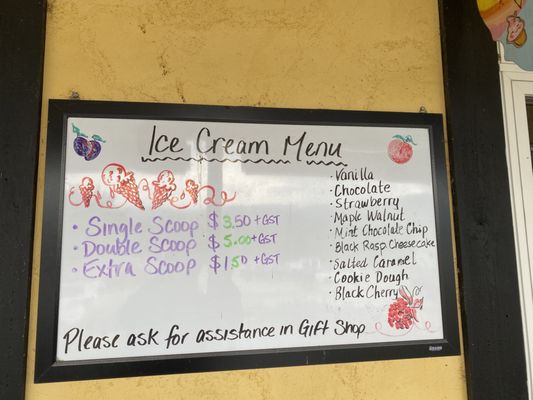 Ice Cream Menu
• Single Scoop $3.50 +GST
• Double Scoop $5.00 +GST
• Extra Scoop $1.50 +GST
• Vanilla
• Chocolate
• Strawberry
• Maple Walnut
• Mint Chocolate Chip
• Black Rasp Cheesecake
• Salted Caramel
• Cookie Dough
• Black Cherry
Please ask for assistance in Gift Shop